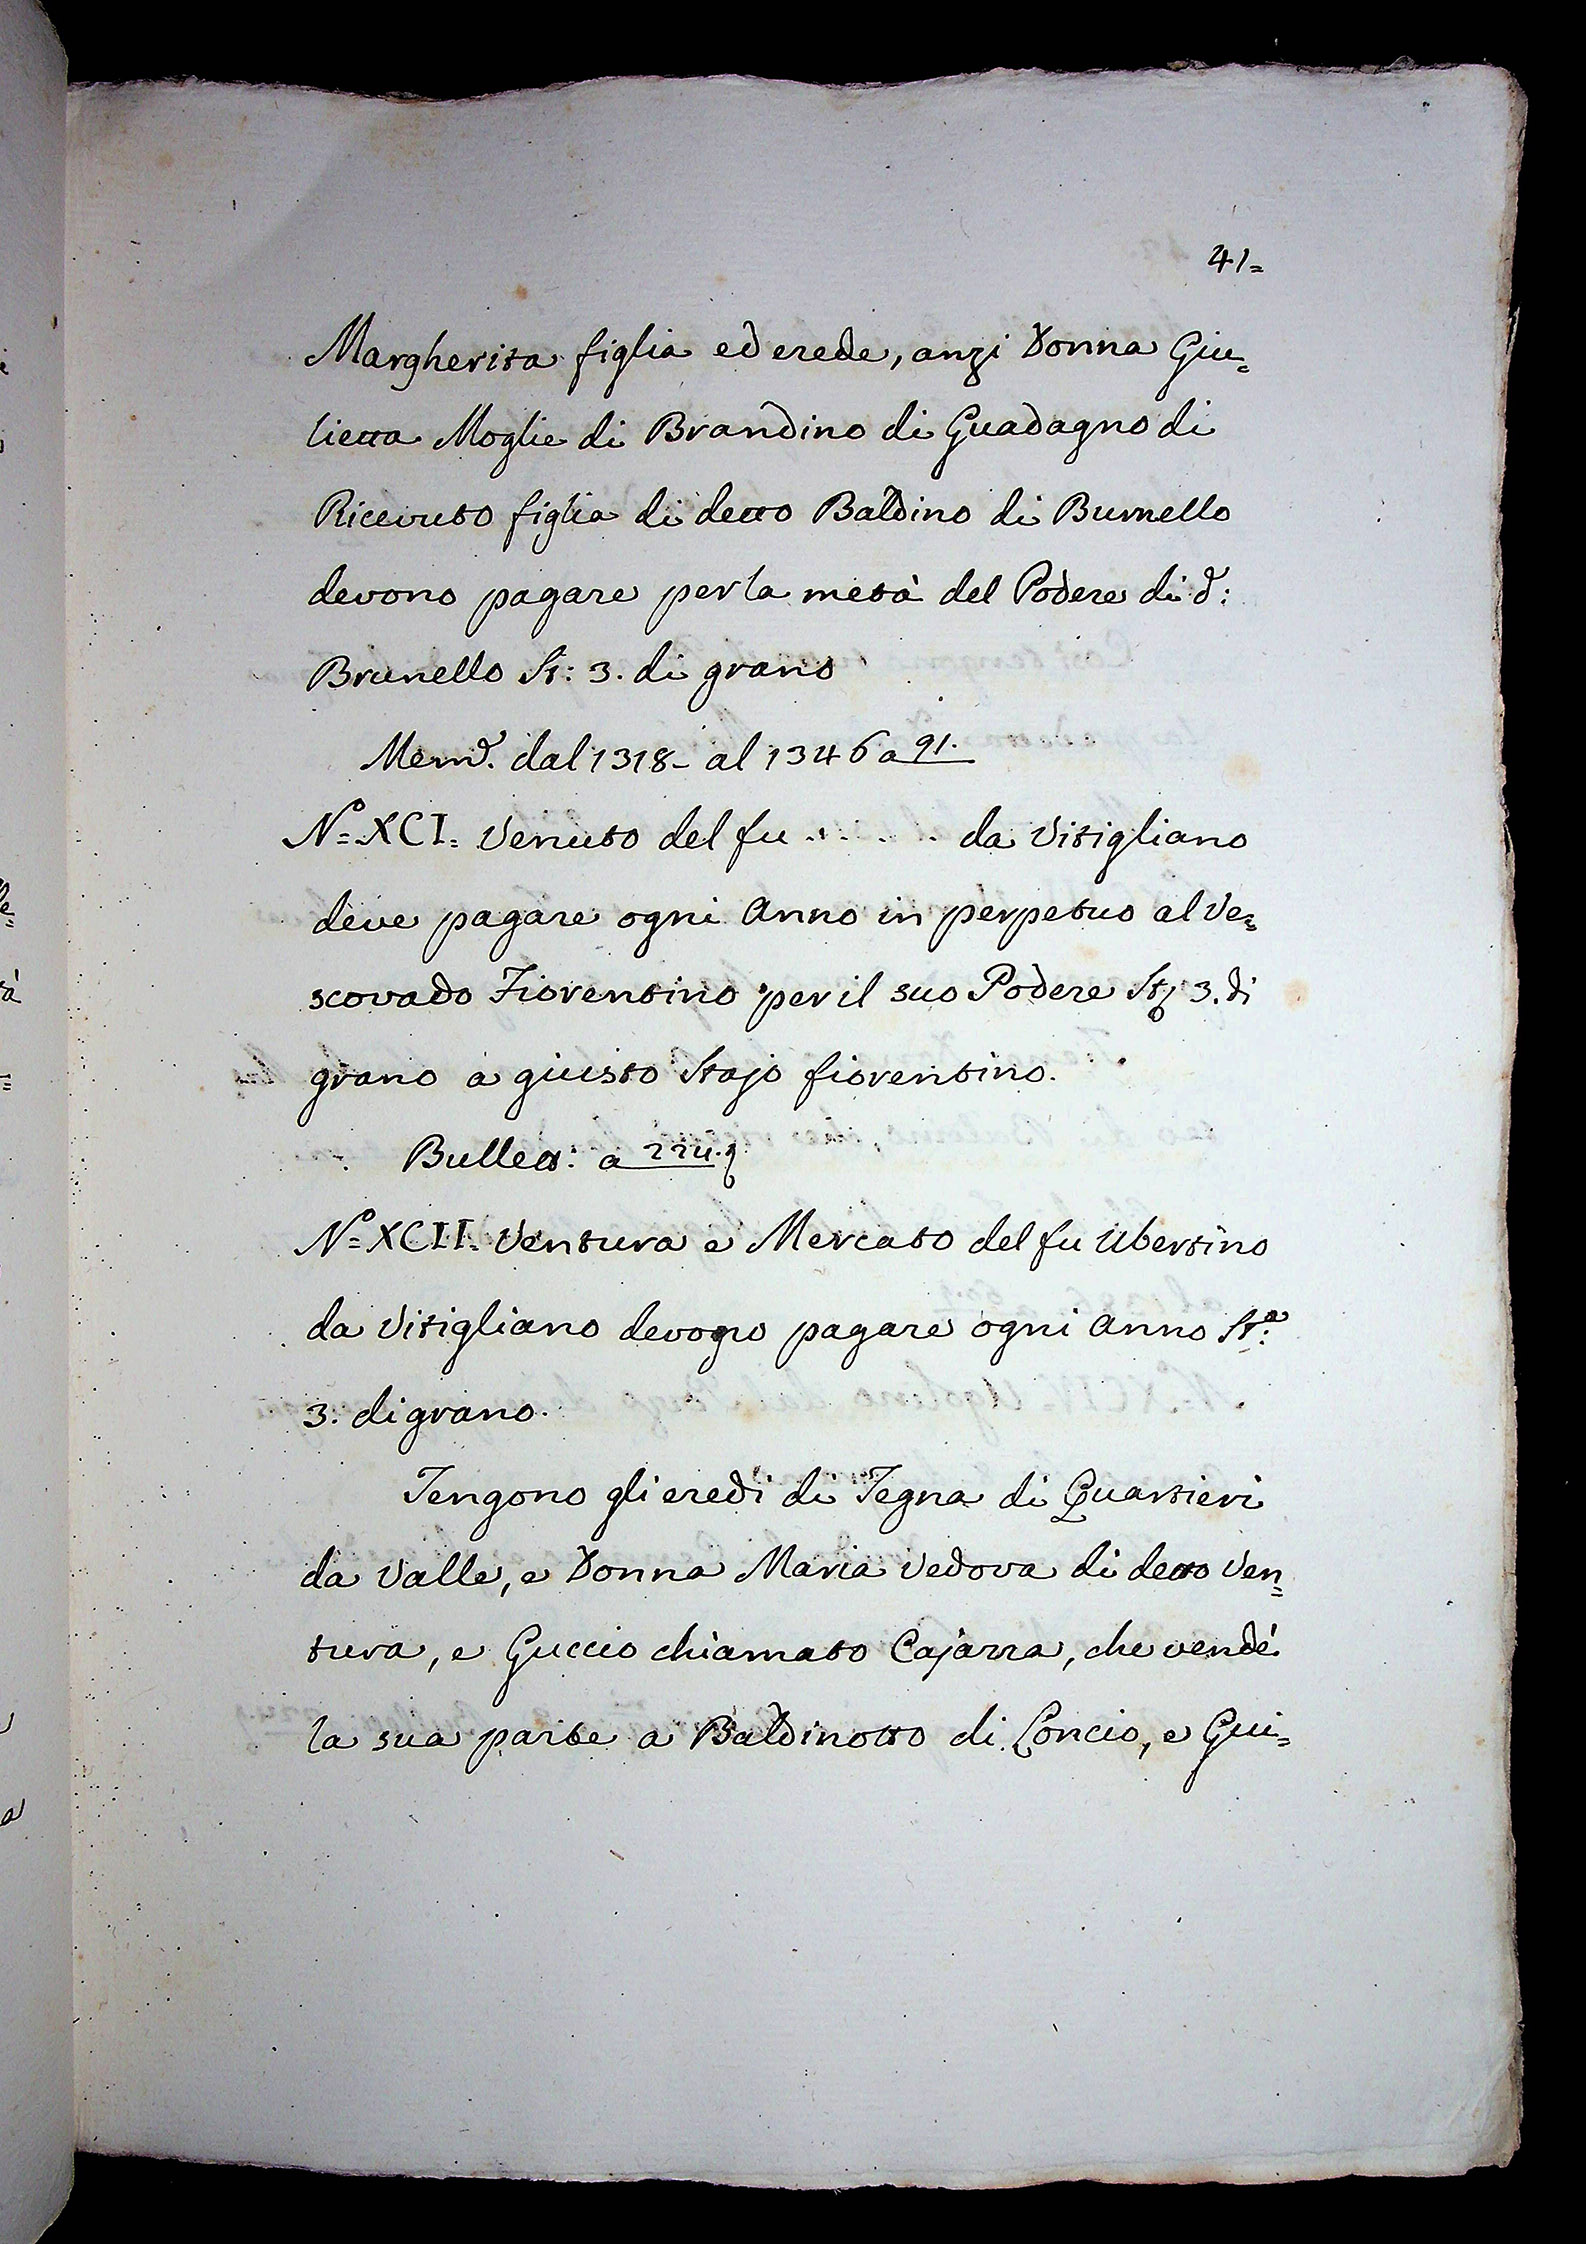 41=
Margherita figlia ed erede, anzi Donna Giu=
lietta Moglie di Brandino di Guadagno di
Ricevuto figlia di detto Baldino di Burnello
devono pagare per la metà del Podere di d:
Brunello St: 3. di grano
Memd. dal 1318- al 1346 a 91.
No= XCI= Venuto del fu . . . . . . da Vitigliano
deve pagare ogni Anno in perpetuo al Ve=
scovado Fiorentino per il suo Podere St 3. di
grano a giusto Stajo fiorentino.
Bullett: a 224.
No= XCII= Ventura e Mercato del fu Ubertino
da Vitigliano devono pagare ogni Anno Sta:
3: di grano.
Tengono gli eredi di Tegna di Quartieri
da Valle, e Donna Maria Vedova di detto Ven=
tura, e Guccio chiamato Cajarra, che vendé
la sua parte a Baldinotto di Concio, e Gui=